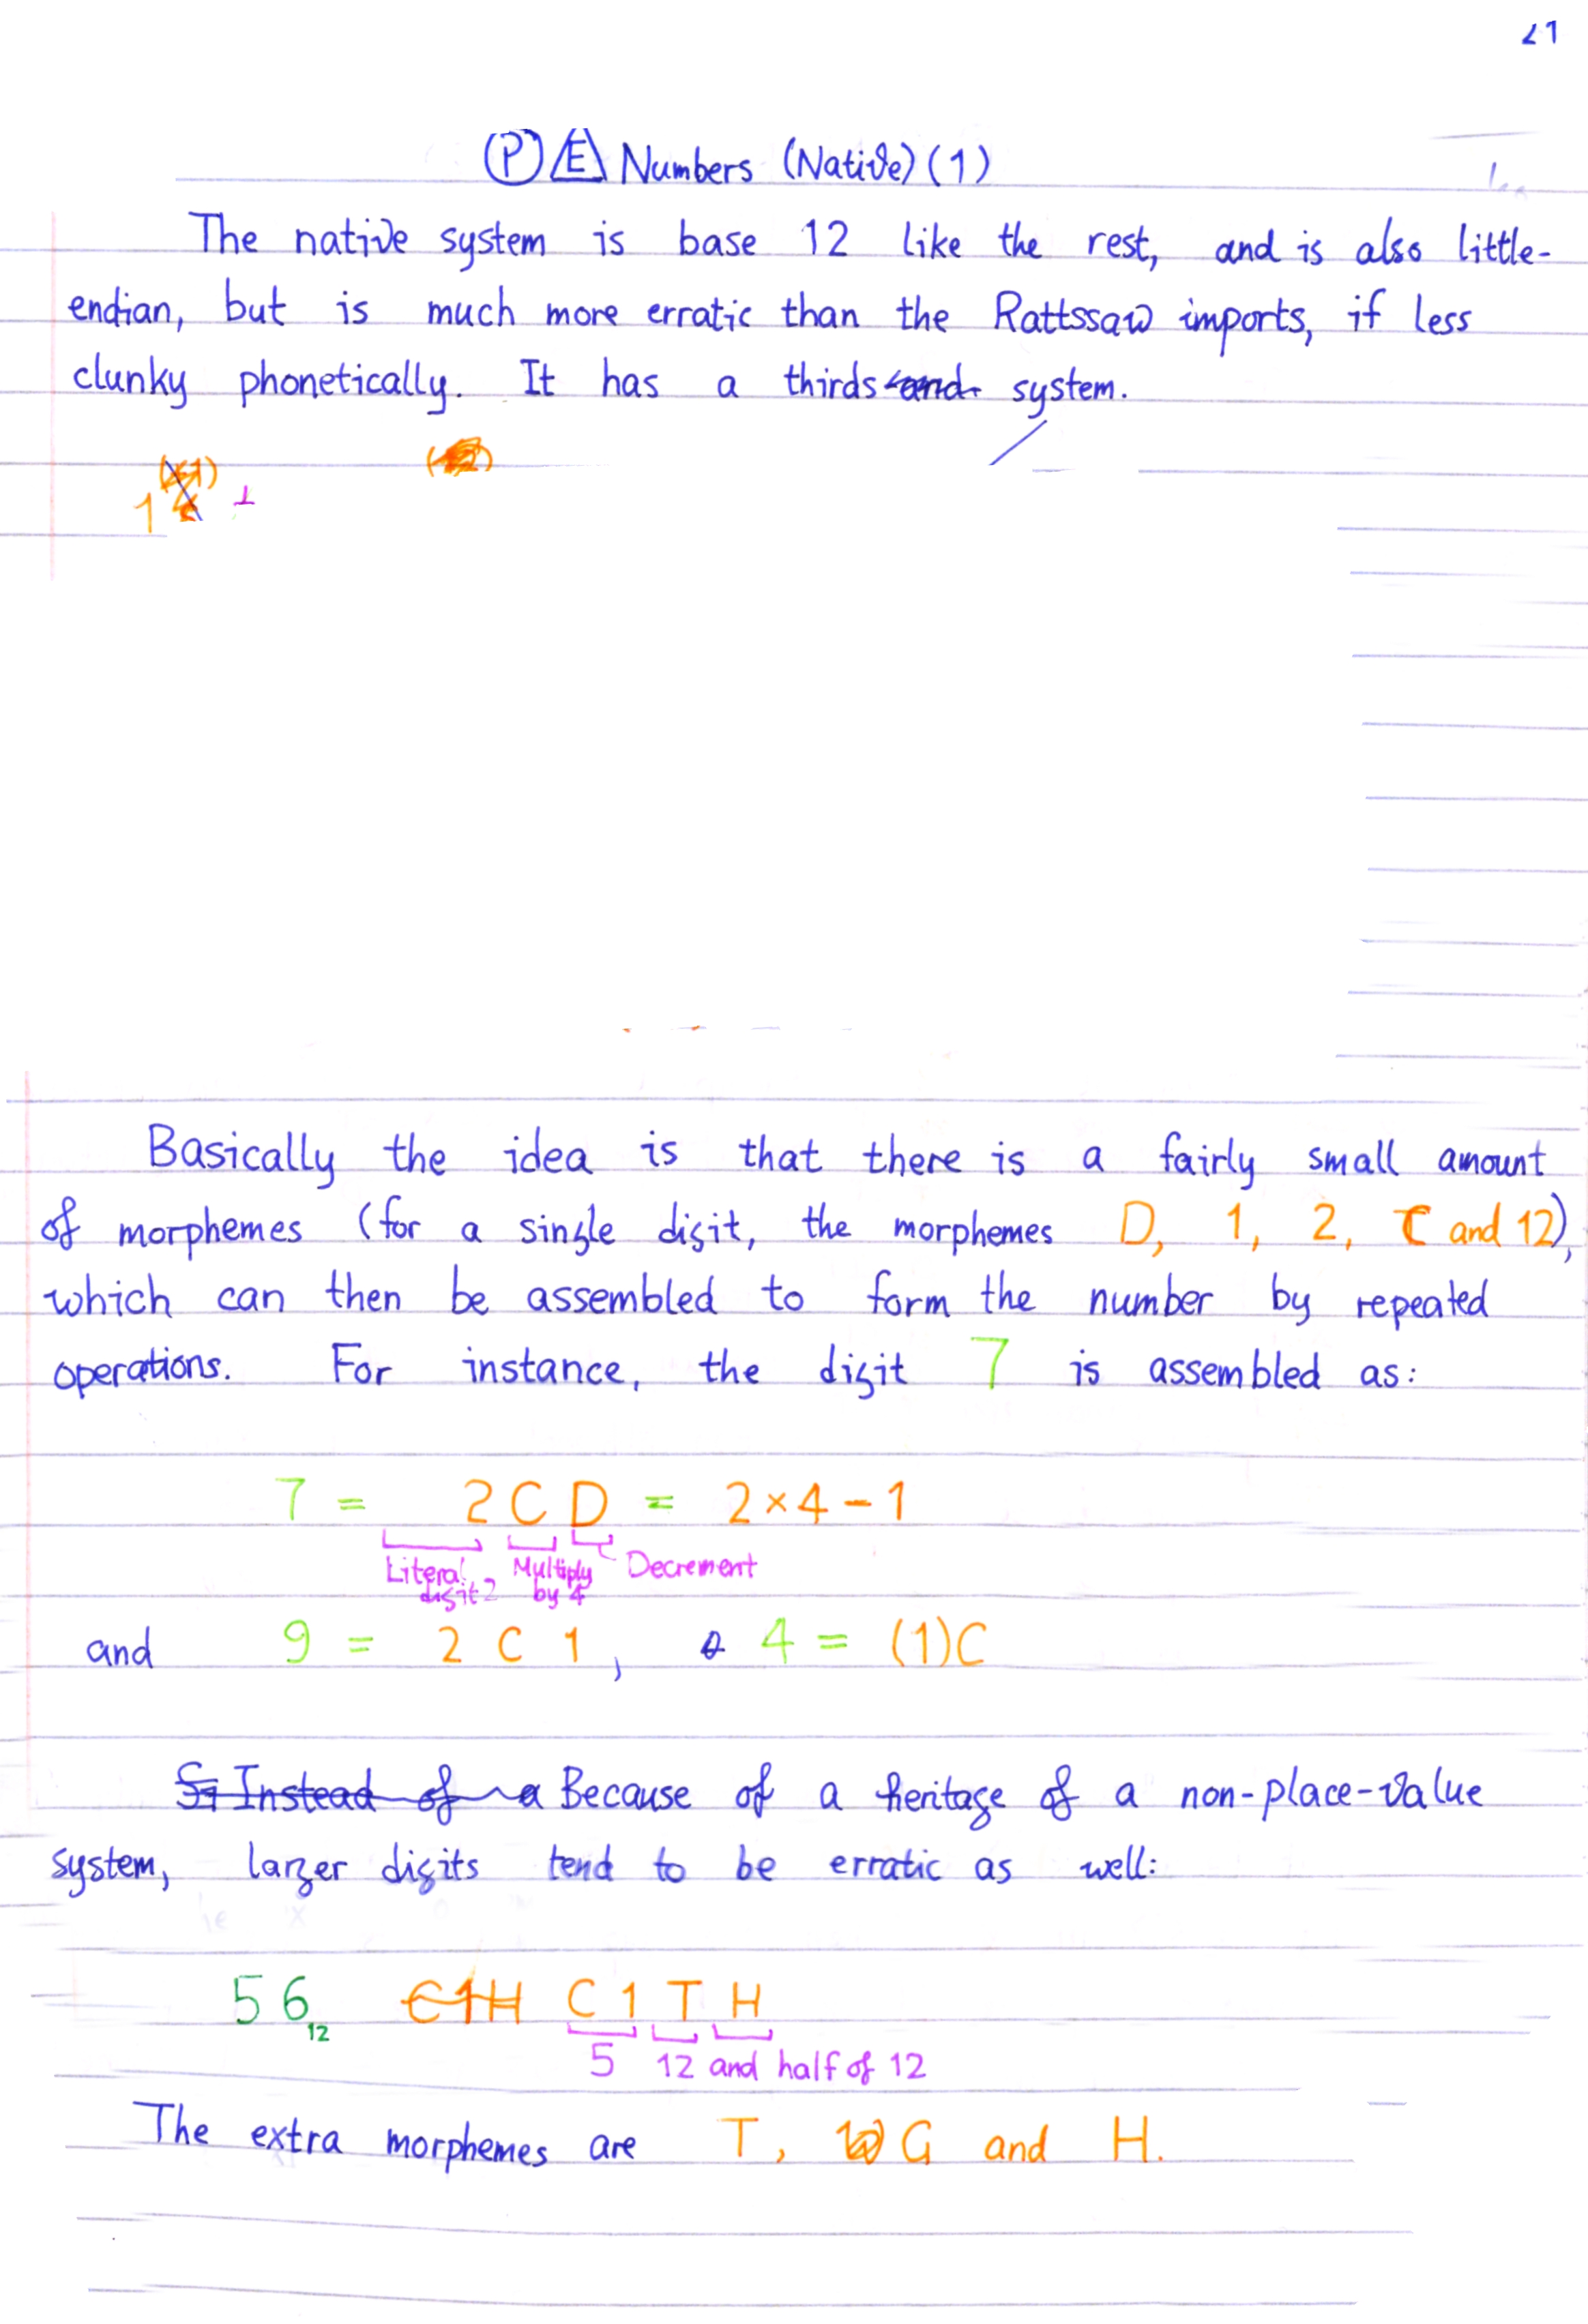 21
(P) E Numbers (Native) (1)
The native system is base 12 like the rest, and is also little-
endian, but is much more erratic than the Rattssaw imports, if less
clunky phonetically. It has a thirds and system.
1
Basically the idea is that there is a fairly small amount
of morphemes (for a single digit, the morphemes D, 1, 2, C and 12),
which can then be assembled to form the number by repeated
operations. For instance, the digit 7 is assembled as:
7 = 2 C D = 2×4-1
Literal digit 2 Multiply by 4 Decrement
and 9 = 2 C 1, 4 = (1)C
Instead of a Because of a heritage of a non-place-value
system, larger digits tend to be erratic as well:
56₁₂ C1H C 1 T H
5 12 and half of 12
The extra morphemes are T, G and H.